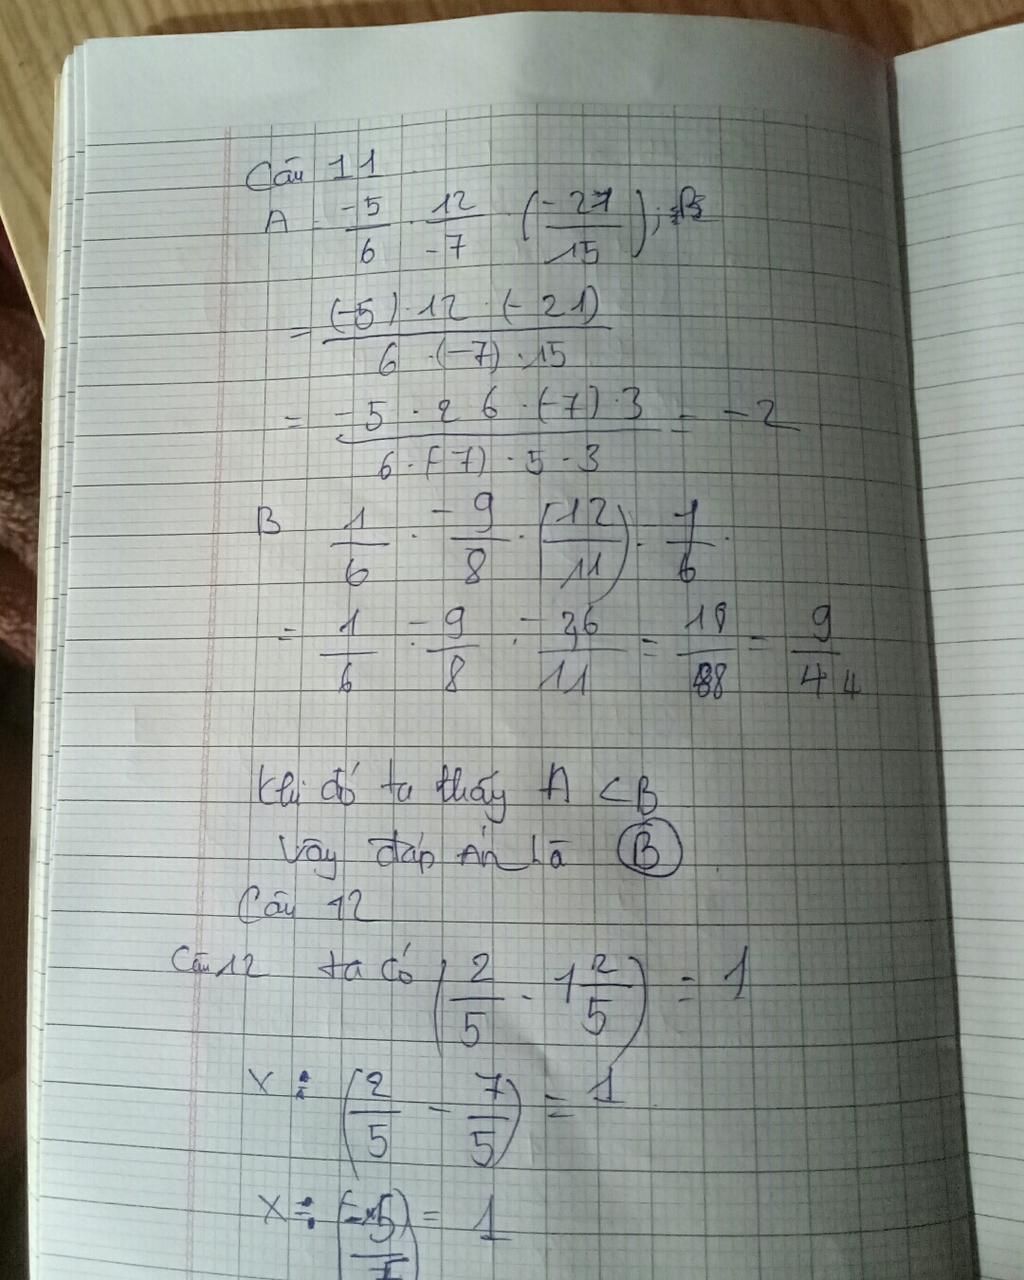 Câu 11
A = -5/6 · 12/-7 · (-21/15); B
= (-5) · 12 · (-21) / 6 · (-7) · 15
= -5 · 2 6 · (-7) · 3 / 6 · (-7) · 5 · 3 = -2
B 1/6 · -9/8 · (-12/11) · 1/6
= 1/6 · -9/8 · -36/11 = / 88 = 9/44
Khi đó ta thấy A < B
Vậy đáp án là B
Câu 12
Câu 12 ta có (2/5 - 1 2/5) = 1
x : (2/5 - 7/5) = 1
x : = 1